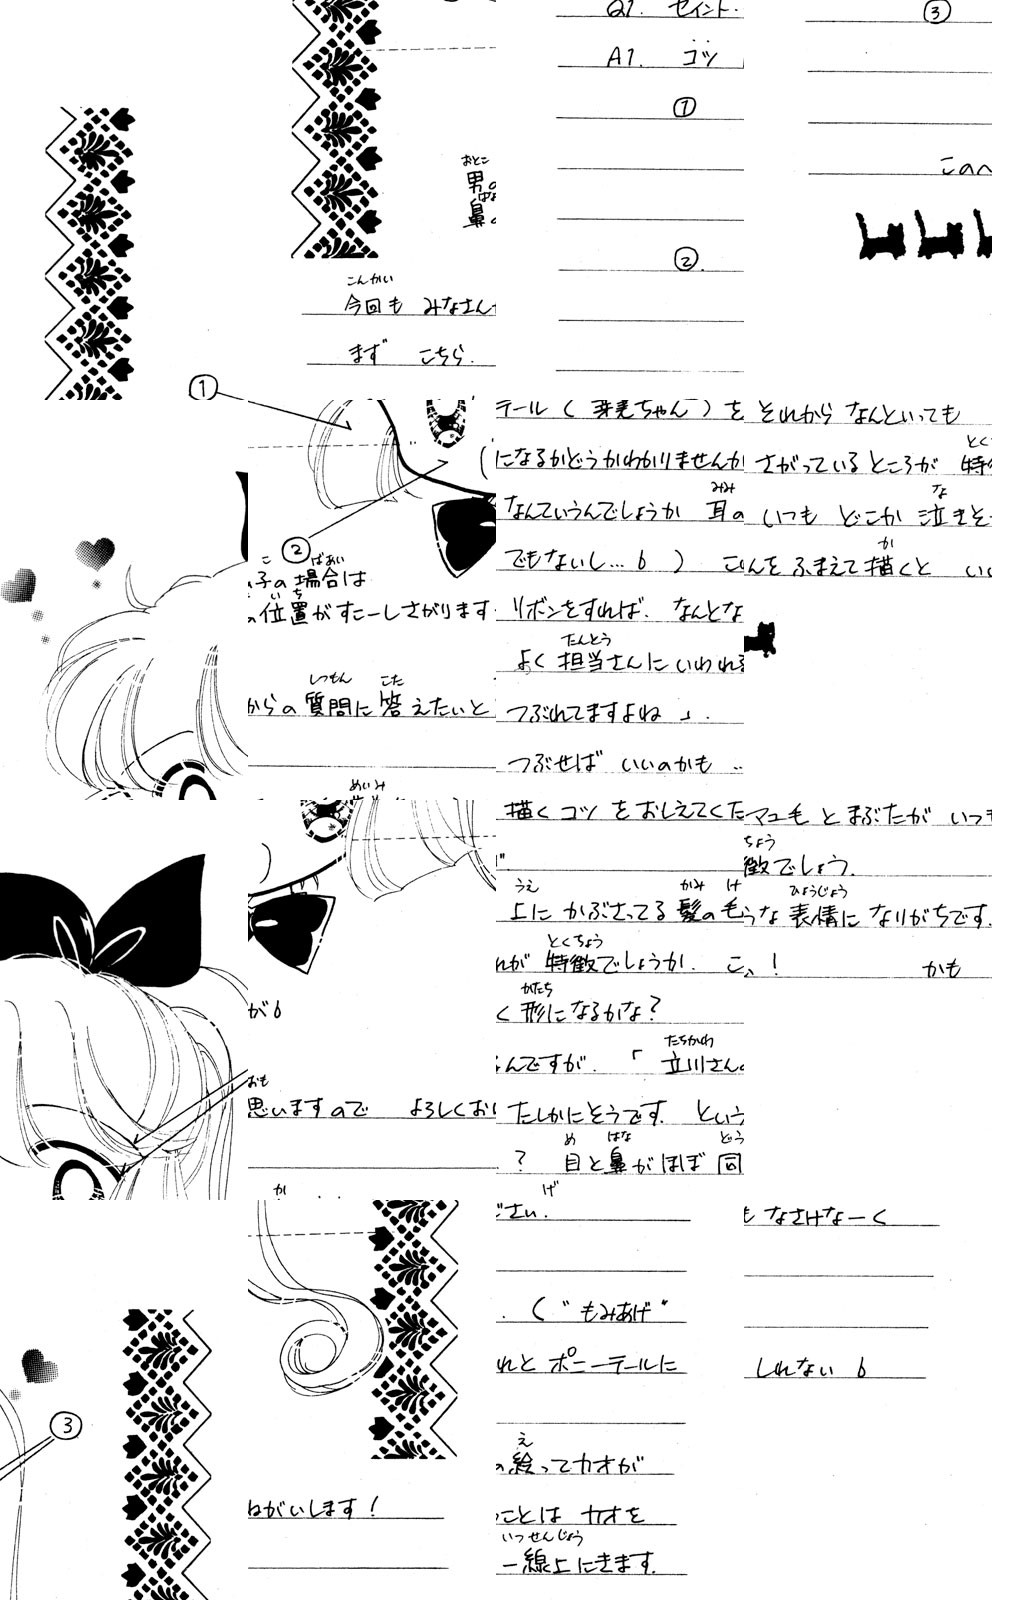 ①
③
おとこ
男の
鼻
こんかい
今回も みなさん
まず こちら.
②
こ ばあい
子の場合は
いち
の位置がすこーしさがります
しつもん こた
からの 質問に 答えたいと
めいみ
が
おも
思いますので よろしくお
か
ねがいします!
Q1. セイント・
A1. コツ
①
②.
テール ( 芽美ちゃん ) を
になるかどうかわかりませんが
みみ
なんていうんでしょうか 耳の
でもないし… )
リボンをすれば. なんとな
たんとう
よく 担当さんに いわれる
つぶれてますよね 」.
つぶせば いいのかも …
描く コツ をおしえてくだ
うえ かみ け
上に かぶさってる 髪の毛
とくちょう
れが 特徴でしょうか. こ
かたち
く 形になるかな?
たちかわ
なんですが. 「 立川さん
たしかにそうです. という
め はな どう
? 目と鼻がほぼ 同
げ
ださい.
. ( “もみあげ”
れと ポニーテールに
え
の絵ってカオが
ことは カオを
いっせんじょう
一線上にきます.
③
このへ
それから なんといっても
とく
さがっているところが 特
な
いつも どこか 泣きそ
か
んを ふまえて描くと い
マユ毛 と まぶたが いつ
ちょう
徴でしょう.
ひょうじょう
うな 表情に なりがちです.
! かも
も なさけなーく
しれない